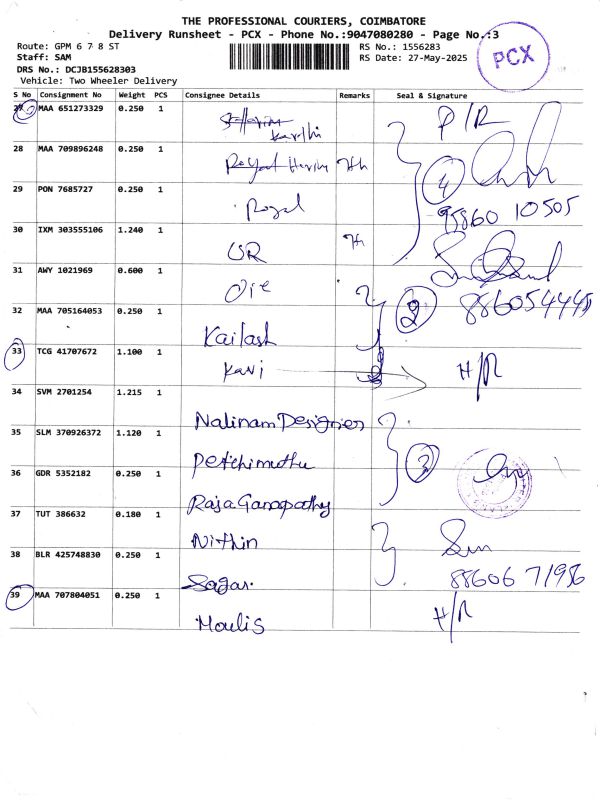 THE PROFESSIONAL COURIERS, COIMBATORE
Delivery Runsheet - PCX - Phone No.:9047080280 - Page No.:3
Route: GPM 6 7 8 ST
RS No.: 1556283
PCX
Staff: SAM
RS Date: 27-May-2025
DRS No.: DCJB155628303
Vehicle: Two Wheeler Delivery
S No Consignment No Weight PCS Consignee Details Remarks Seal & Signature
27 MAA 651273329 0.250 1 Karthi P/R
28 MAA 709896248 0.250 1
29 PON 7685727 0.250 1 Royal 4
95860 10505
30 IXM 303555106 1.240 1 UR
31 AWY 1021969 0.600 1
32 MAA 705164053 0.250 1 Kailash 2
33 TCG 41707672 1.100 1 Kavi H/R
34 SVM 2701254 1.215 1 Nalinam Designer
35 SLM 370926372 1.120 1 Petchimuthu 3
36 GDR 5352182 0.250 1 Raja Ganapathy
37 TUT 386632 0.180 1 Nithin
38 BLR 425748830 0.250 1 Sagar
88606 71956
39 MAA 707804051 0.250 1 Moulis H/R